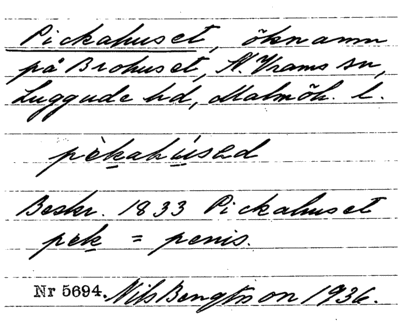 Pickahuset, öknamn
på Brohuset, N. Vrams sn,
Luggude hd, Malmöh. l.
pèkahúsəd
Beskr. 1833 Pickahuset
pek = penis.
Nr 5694. Nils Bengtsson 1936.